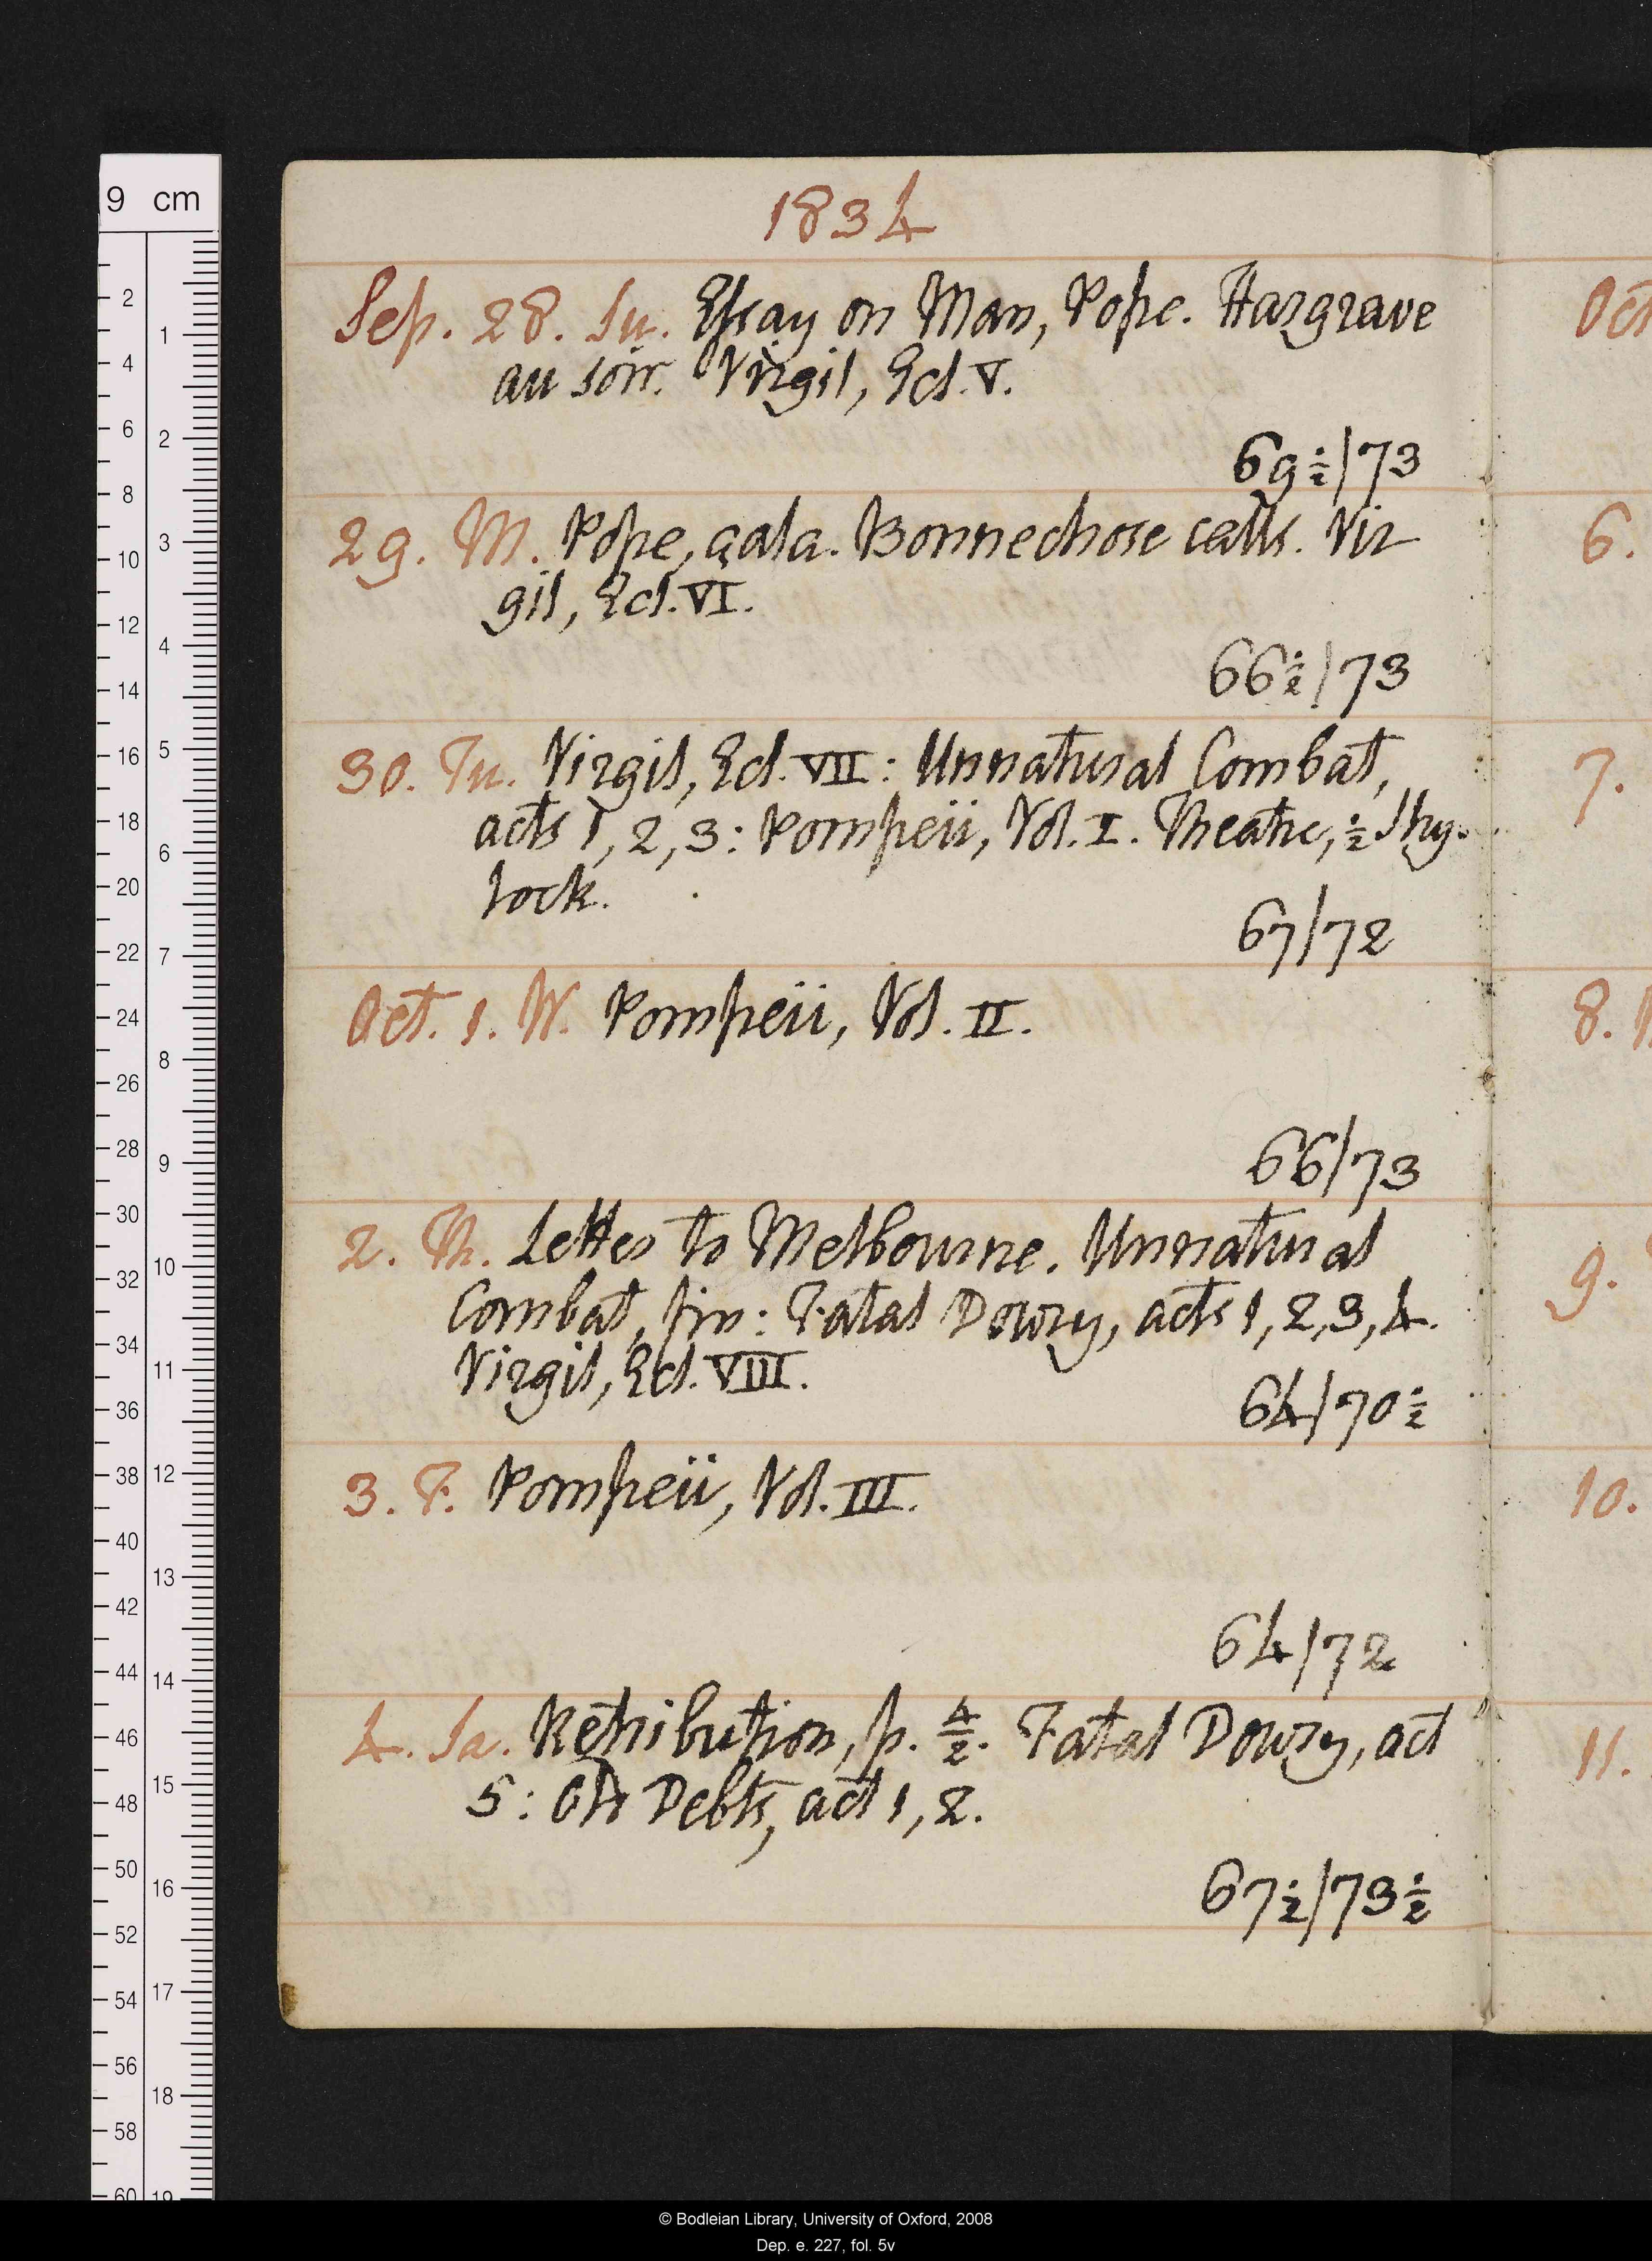 1834
Sep. 28. Su. Essay on Man, Pope. Hargrave
au soir. Virgil, Ecl. V.
69½/73
29. M. Pope, çala. Bonnechose calls. Vir
gil, Ecl. VI.
66½/73
30. Tu. Virgil, Ecl. VII: Unnatural Combat,
acts 1, 2, 3: Pompeii, Vol. I. Theatre, ½ Shy-
lock.
67/72
Oct. 1. W. Pompeii, Vol. II.
66/73
2. Th. Letter to Melbourne. Unnatural
Combat, fin: Fatal Dowry, acts 1, 2, 3, 4.
Virgil, Ecl. VIII.
64/70½
3. F. Pompeii, Vol. III.
64/72
4. Sa. Retribution, p. 4/2. Fatal Dowry, act
5: Old Debts, act 1, 2.
67½/73½
Oct
6.
7.
8.
9.
10.
11.
9 cm
2
4
6
8
10
12
14
16
18
20
22
24
26
28
30
32
34
36
38
40
42
44
46
48
50
52
54
56
58
60
1
2
3
4
5
6
7
8
9
10
11
12
13
14
15
16
17
18
19
© Bodleian Library, University of Oxford, 2008
Dep. e. 227, fol. 5v